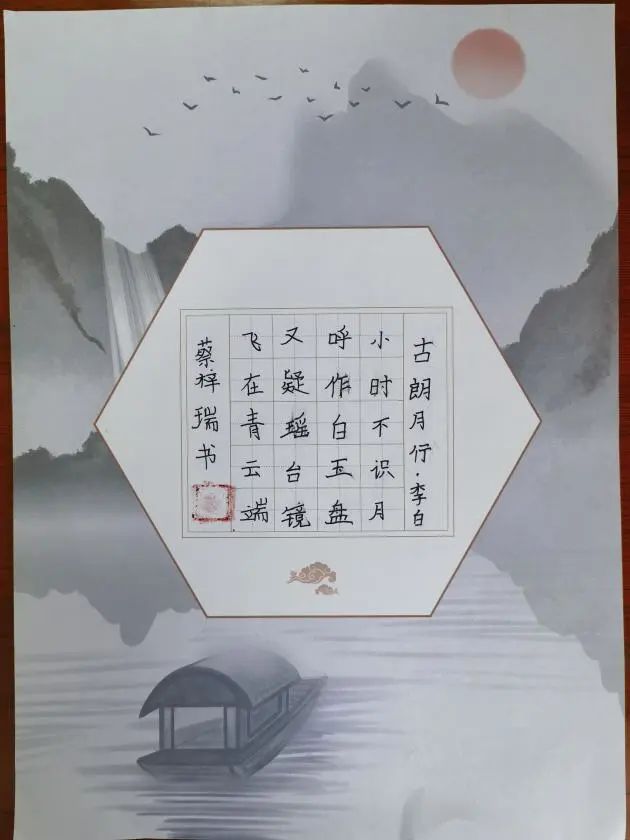 古朗月行·李白
小时不识月
呼作白玉盘
又疑瑶台镜
飞在青云端
蔡梓瑞书